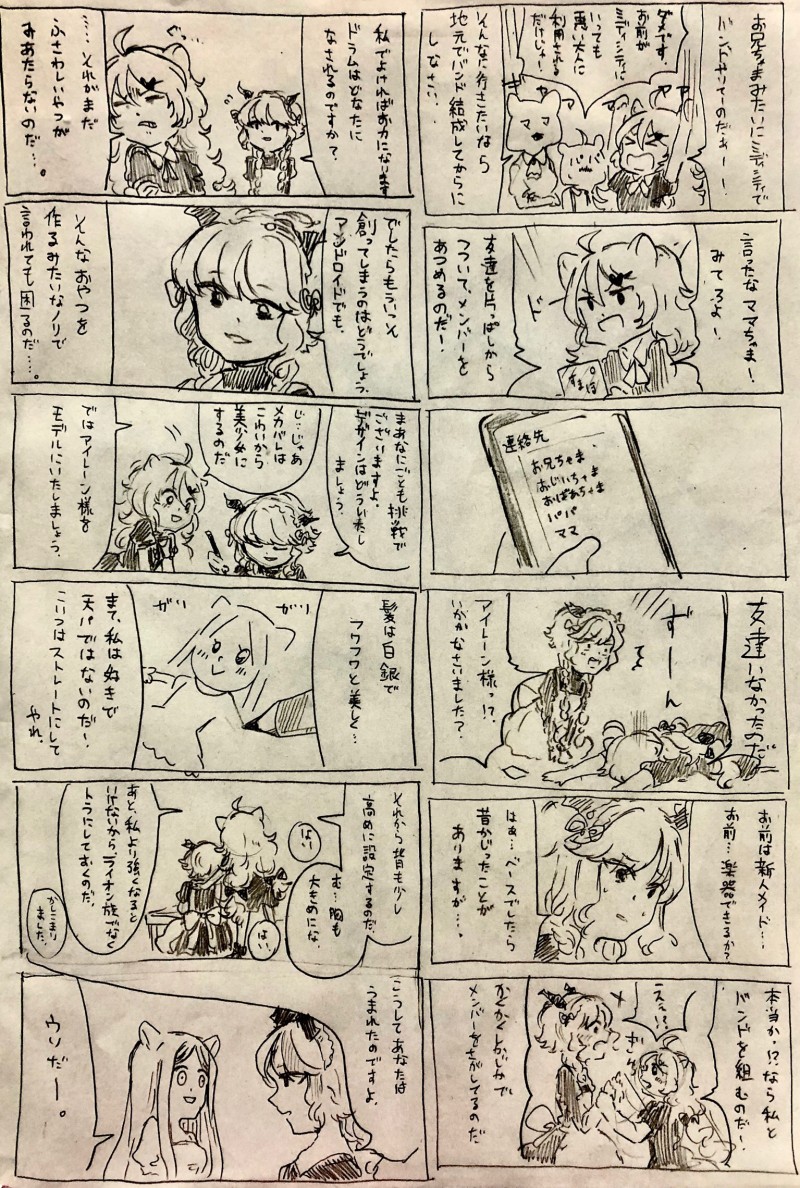 お兄ちゃまみたいにミディシティで
バンドやりてーのだぁー！
ダメです。
お前が
ミディシティに
いっても
悪い大人に
利用される
だけじゃ！
ヤァ
ヤァ
ママ
パパ
そんなに行きたいなら
地元でバンド結成してからに
しなさい。
言ったなママちゃま！
みてろよ！
ド
すまほ
友達を片っぱしから
つついて、メンバーを
あつめるのだ！
連絡先
お兄ちゃま
おじいちゃま
おばあちゃま
パパ
ママ
友達いなかったのだ
ずーん
アイレーン様っ!?
いかがなさいました？
お前は新人メイド…
お前…楽器できるか？
はぁ…ベースでしたら
昔かじったことが
ありますが…。
本当か!?なら私と
バンドを組むのだ！
えぇ!?
かくかくしかじかで
メンバーをさがしてるのだ
私でよければお力になります
ドラムはどなたに
なされるのですか？
ぐっ…
……それがまだ
ふさわしいやつが
みあたらないのだ…。
でしたらもういっそ
創ってしまうのはどうでしょう。
アンドロイドでも。
そんなおやつを
作るみたいなノリで
言われても困るのだ…。
まあなにごとも挑戦で
ございますよ。
デザインはどういたし
ましょう。
じ…じゃあ
メカバレは
こわいから
美少女に
するのだ
ではアイレーン様を
モデルにいたしましょう。
髪は白銀で
フワフワと美しく…
ガリ
ガリ
まて、私はぬきで
天パではないのだ！
こいつはストレートにして
やれ。
それから背も少し
高めに設定するのだ。
はい
む…胸も
大きめにな。
はい。
あと、私より強くなると
いけないから、ライオン族でなく
トラにしておくのだ。
かしこまり
ました。
こうしてあなたは
うまれたのですよ。
ウソだー。